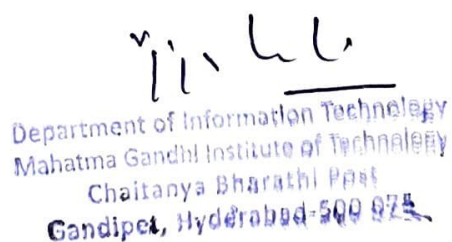 Department of Information Technology
Mahatma Gandhi Institute of Technology
Chaitanya Bharathi Post
Gandipet, Hyderabad-500 075.